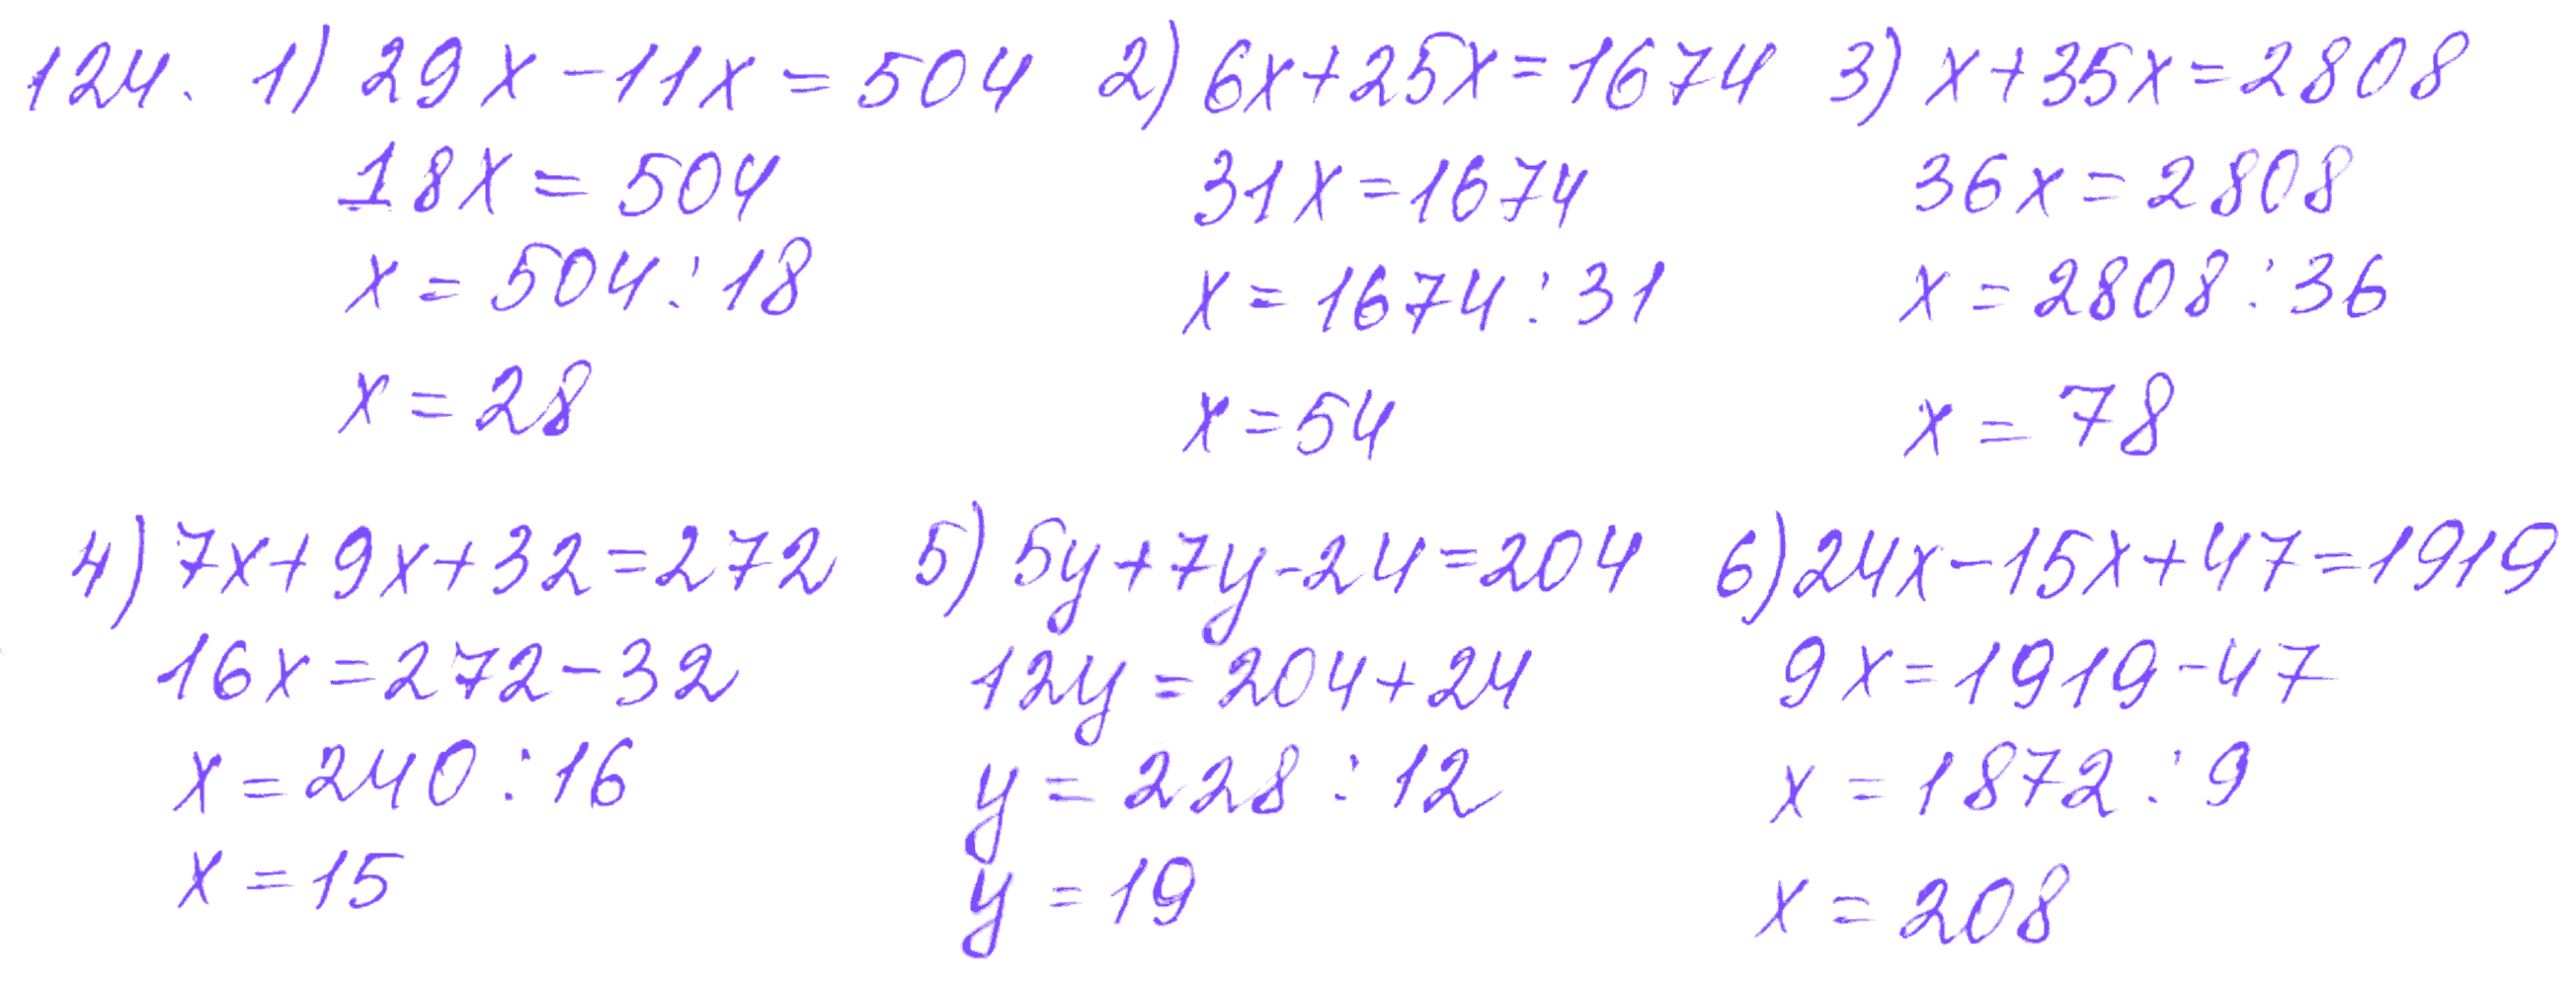 124. 1) 29x - 11x = 504
18x = 504
x = 504 : 18
x = 28
2) 6x + 25x = 1674
31x = 1674
x = 1674 : 31
x = 54
3) x + 35x = 2808
36x = 2808
x = 2808 : 36
x = 78
4) 7x + 9x + 32 = 272
16x = 272 - 32
x = 240 : 16
x = 15
5) 5y + 7y - 24 = 204
12y = 204 + 24
y = 228 : 12
y = 19
6) 24x - 15x + 47 = 1919
9x = 1919 - 47
x = 1872 : 9
x = 208